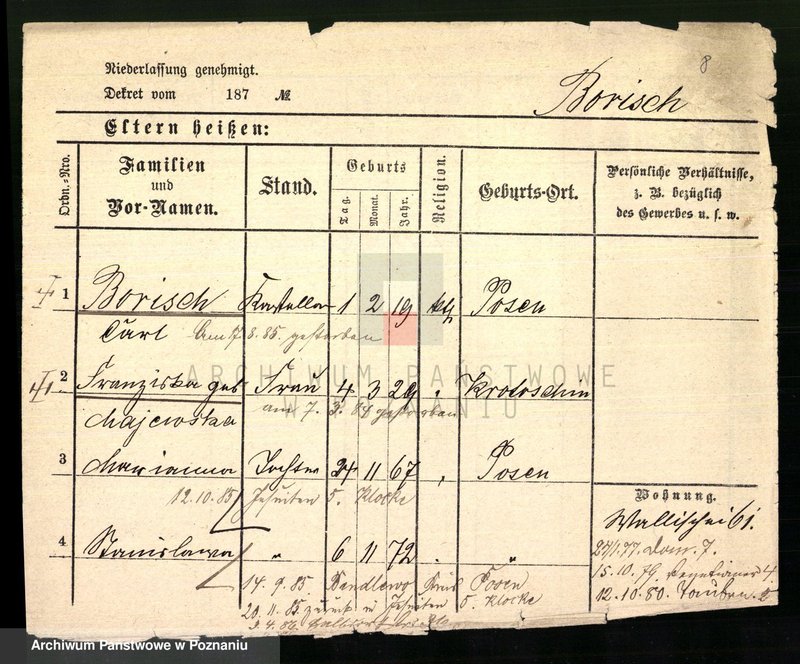 8
Niederlassung genehmigt.
Dekret vom 187 №
Borisch
Eltern heißen:
Ordn.-Nro.
Familien
und
Vor-Namen.
Stand.
Geburts
Tag.
Monat.
Jahr.
Religion.
Geburts-Ort.
Persönliche Verhältnisse,
z. B. bezüglich
des Gewerbes u. s. w.
1 Borisch Kastellan 1 2 19 kth Posen
Carl Am 7 8. 85. gestorben
2 Franziska geb Frau 4 3 29 " Krotoschin
Majewska am 7. 3. 84 gestorben
3 Marianna Tochter 24 11 67 " Posen
12.10.85 Jesuiten 5. Klocke
4 Stanislawa " 6 11 72 " "
14. 9. 85. Kreis Posen
20. 11. 85 zurück in Jesuiten 5. Klocke
Wohnung.
Wallischei 61.
24/1.77. Dom. 7.
15.10.79. 4.
12.10.80. Tauben
ARCHIWUM PAŃSTWOWE
W POZNANIU
Archiwum Państwowe w Poznaniu